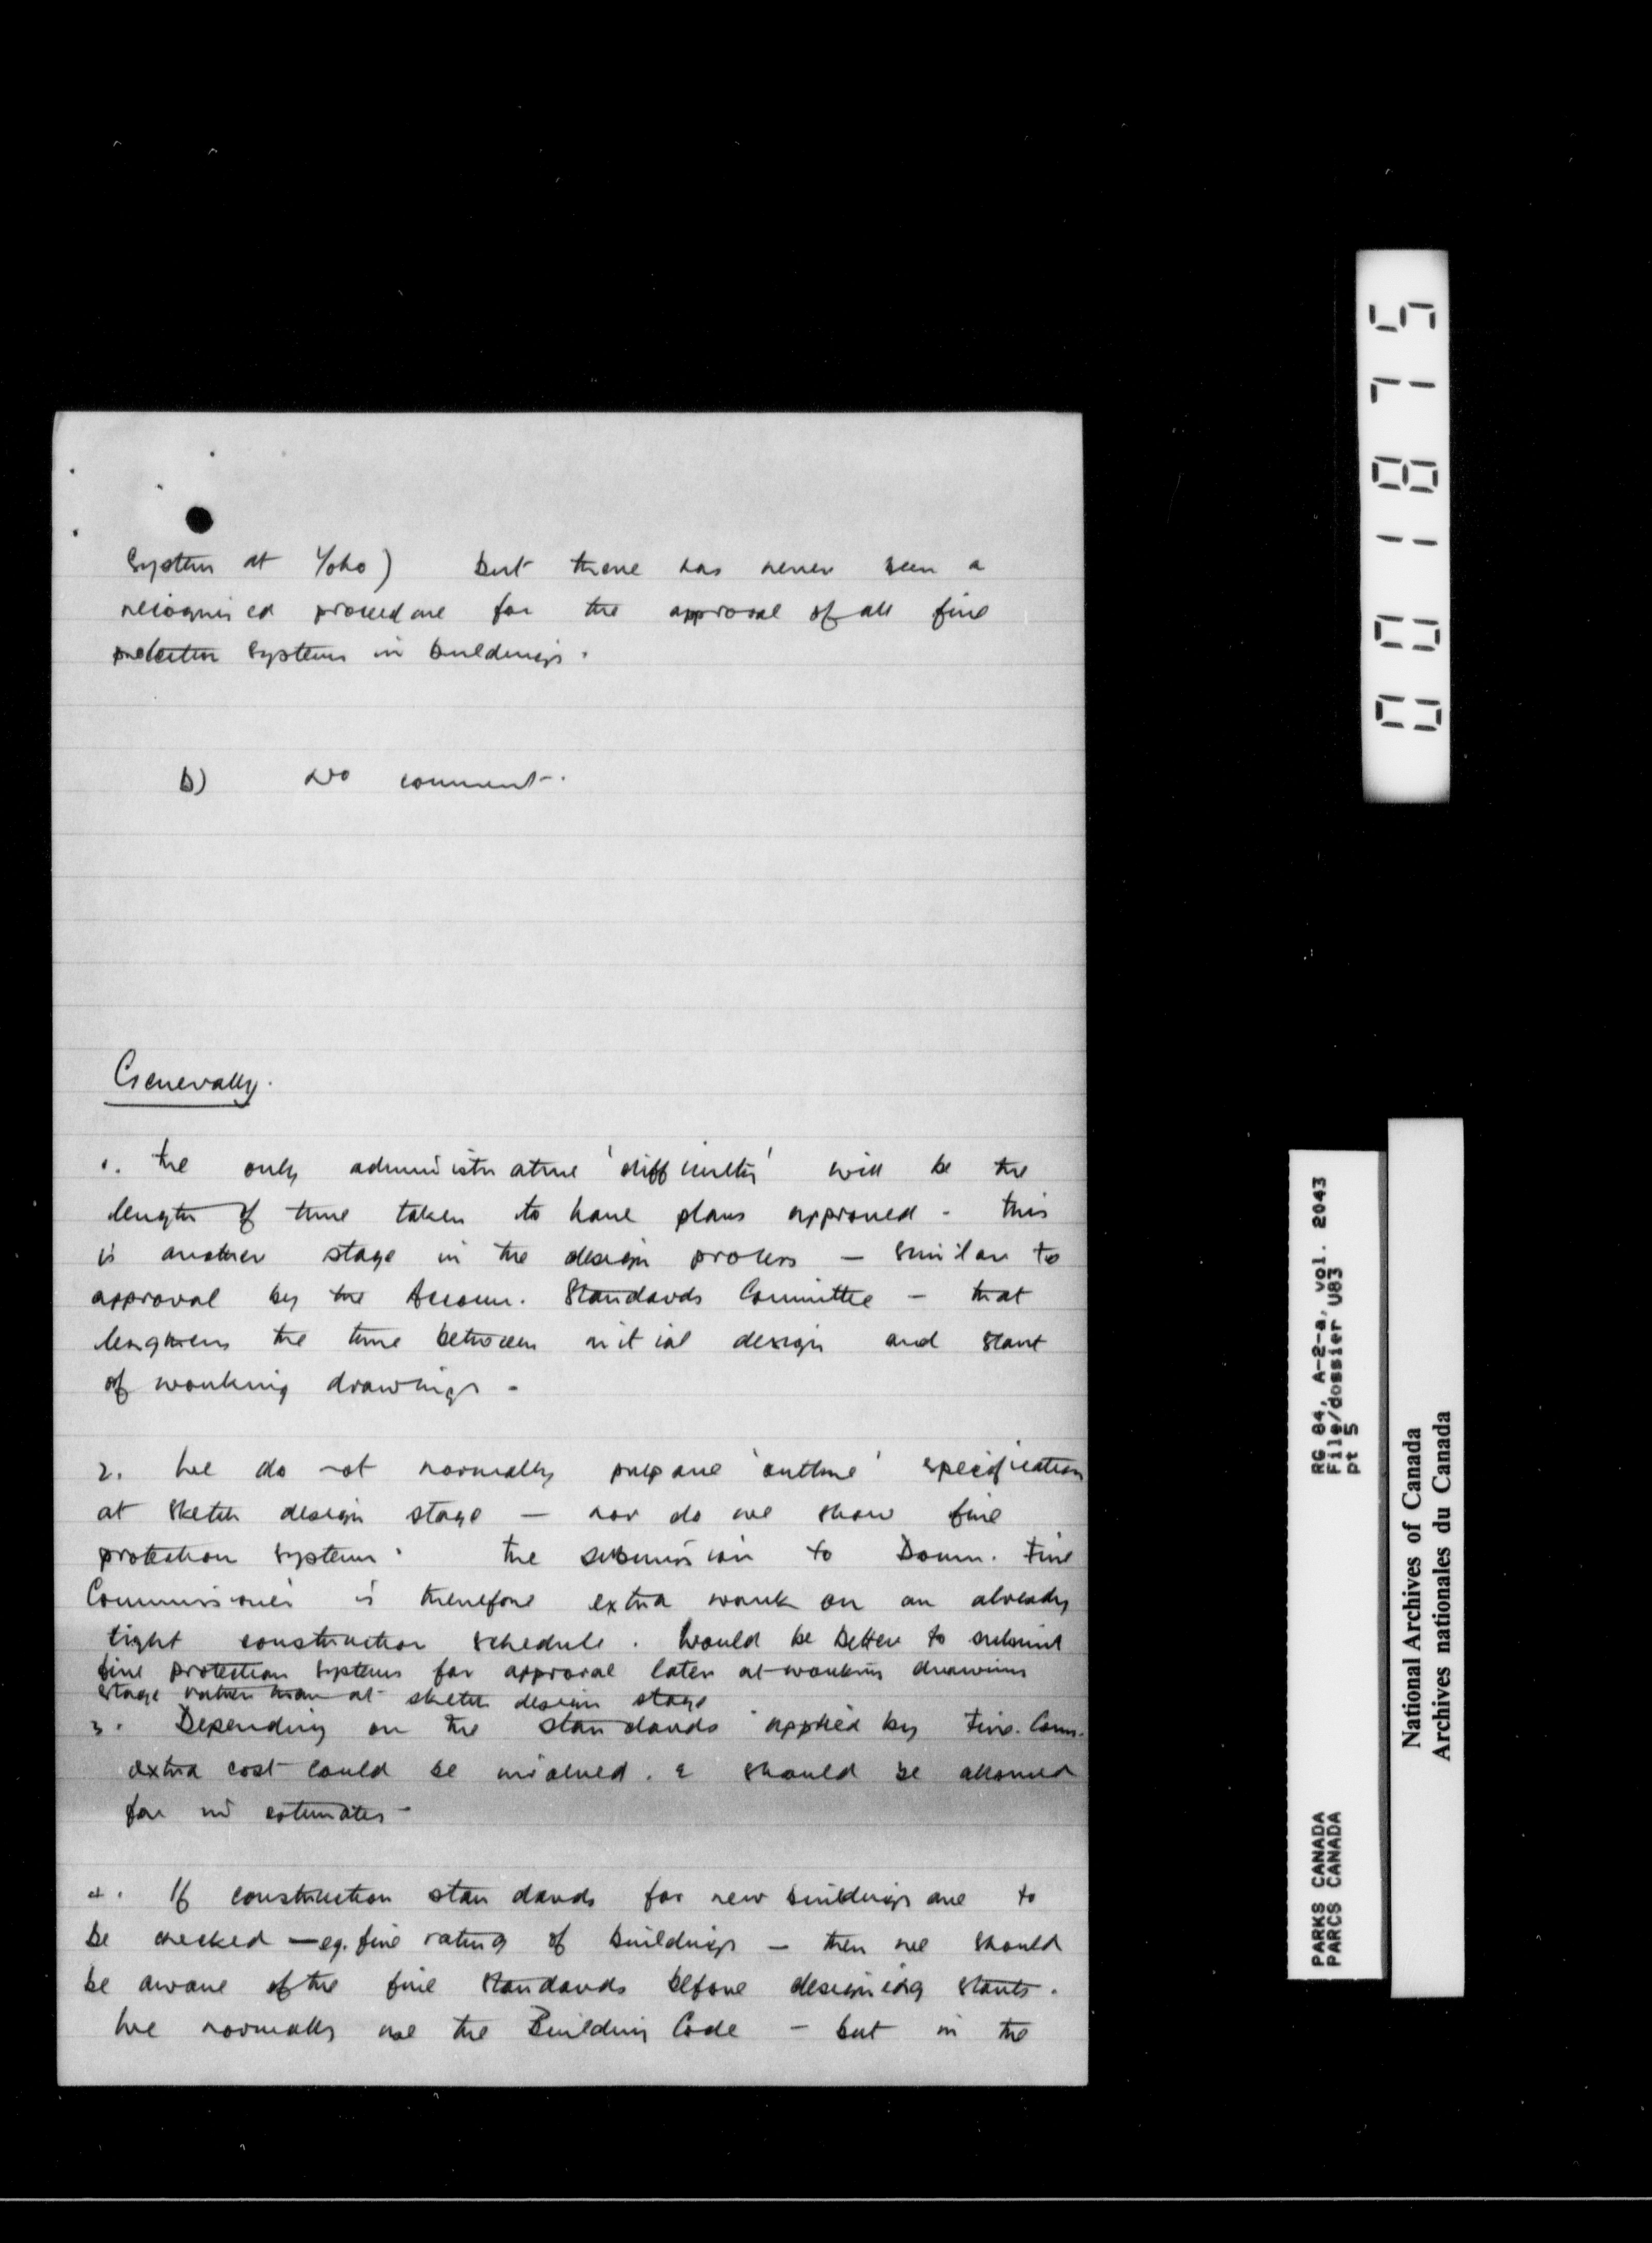 system at Yoho) but there has never been a
recognised procedure for the approval of all fire
protection systems in buildings.
b) No comment.
Generally.
1. The only administrative 'difficulty' will be the
length of time taken to have plans approved - this
is another stage in the design process — similar to
approval by the Accom. Standards Committee - that
lengthens the time between initial design and start
of working drawings.
2. We do not normally prepare 'outline' specification
at sketch design stage — nor do we show fire
protection systems. The submission to Domn. Fire
Commissioner is therefore extra work on an already
tight construction schedule. Would be better to submit
fire protection systems for approval later at working drawings
stage rather than at sketch design stage
3. Depending on the standards applied by Fire. Comm.
extra cost could be involved. & should be allowed
for in estimates -
4. If construction standards for new buildings are to
be checked — eg. fire rating of buildings — then we should
be aware of the fire standards before designing starts.
We normally use the Building Code - but in the
001875
RG 84, A-2-a, vol. 2043
File/dossier U83
pt 5
PARKS CANADA
PARCS CANADA
National Archives of Canada
Archives nationales du Canada